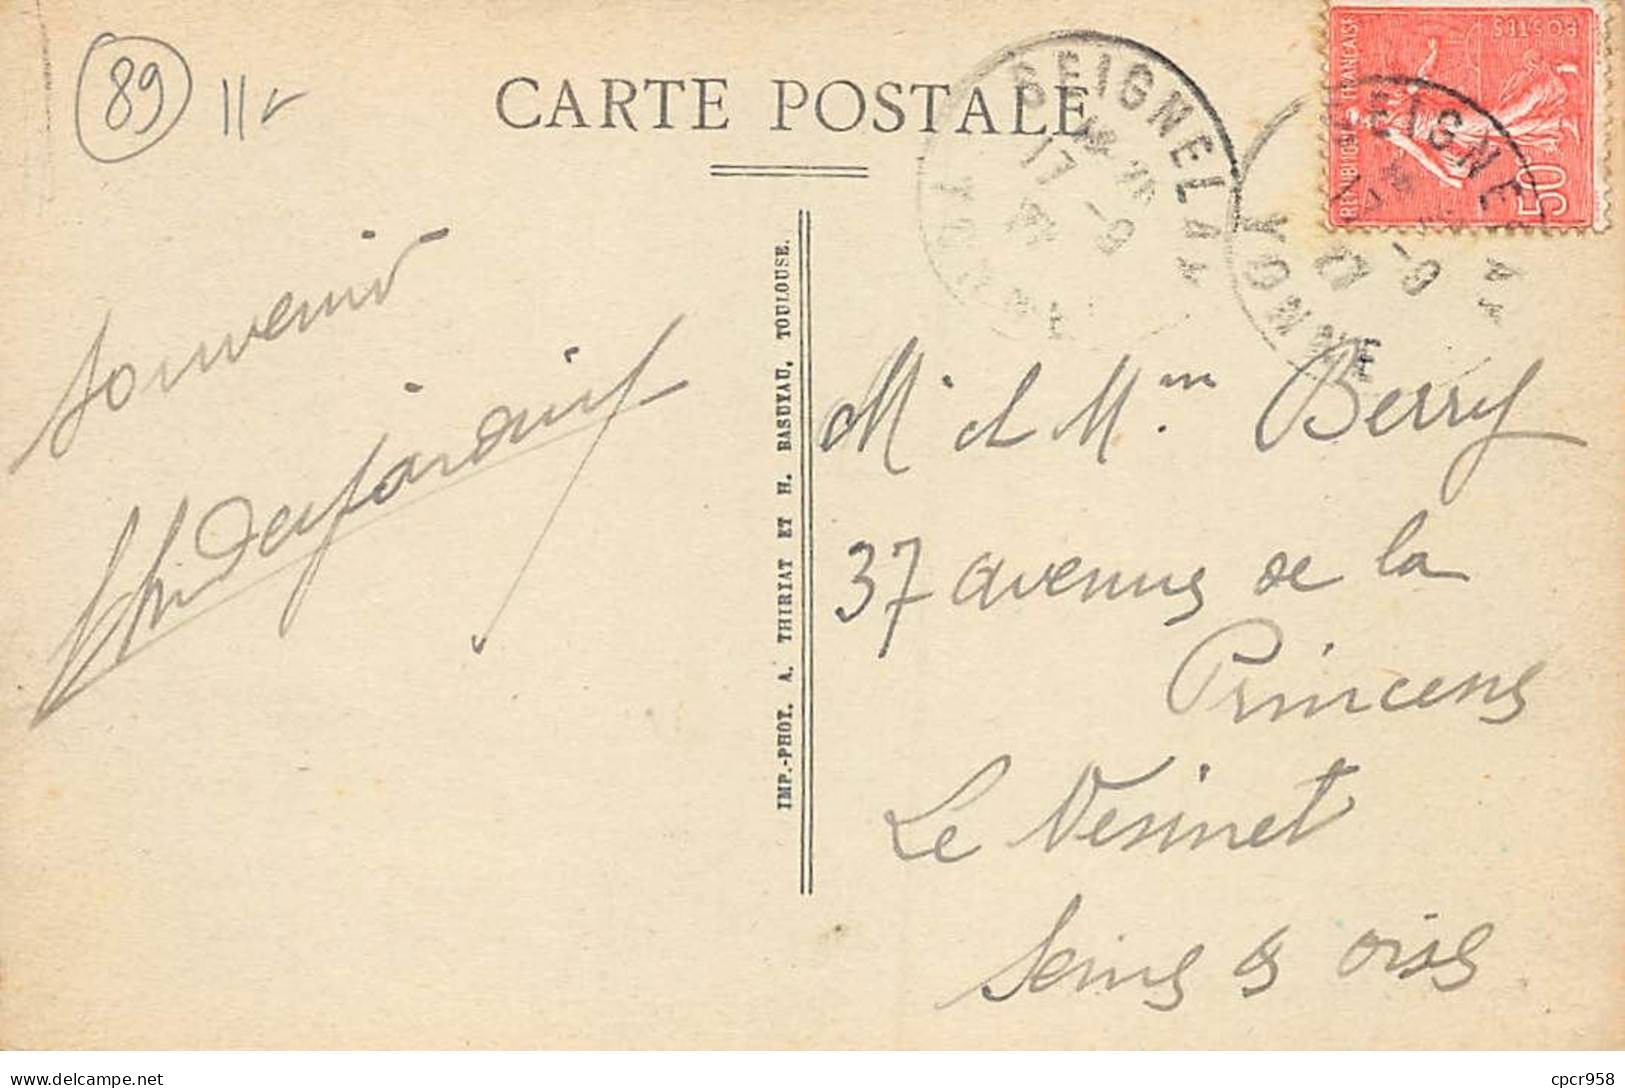 89
CARTE POSTALE
SEIGNELAY
17 -9
YONNE
REPUBLIQUE FRANÇAISE
POSTES
50
SEIGNELAY
-9
YONNE
Souvenir
Desjardins
IMP.-PHOT. A. THIRIAT ET H. BASUYAU, TOULOUSE.
Mr et Mme Berry
37 avenue de la
Princesse
Le Vesinet
Seine & oise
delcampe.net
cpcr958